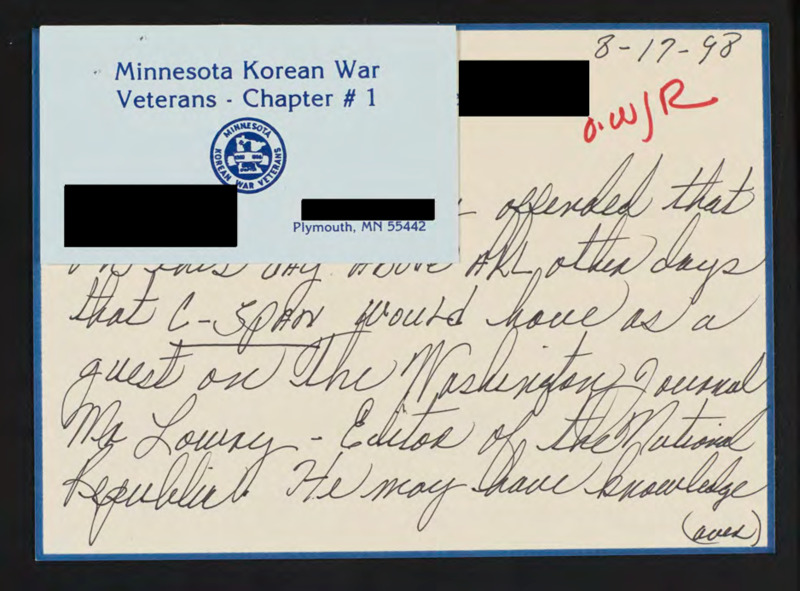 Minnesota Korean War
Veterans - Chapter # 1
MINNESOTA
KOREAN WAR VETERANS
Plymouth, MN 55442
8-17-98
O.W/R
offended that
this DAY Above ALL other days
that C-SPAN would have as a
guest on the Washington Journal
Mr Lowry - Editor of the National
Republic. He may have knowledge
(over)